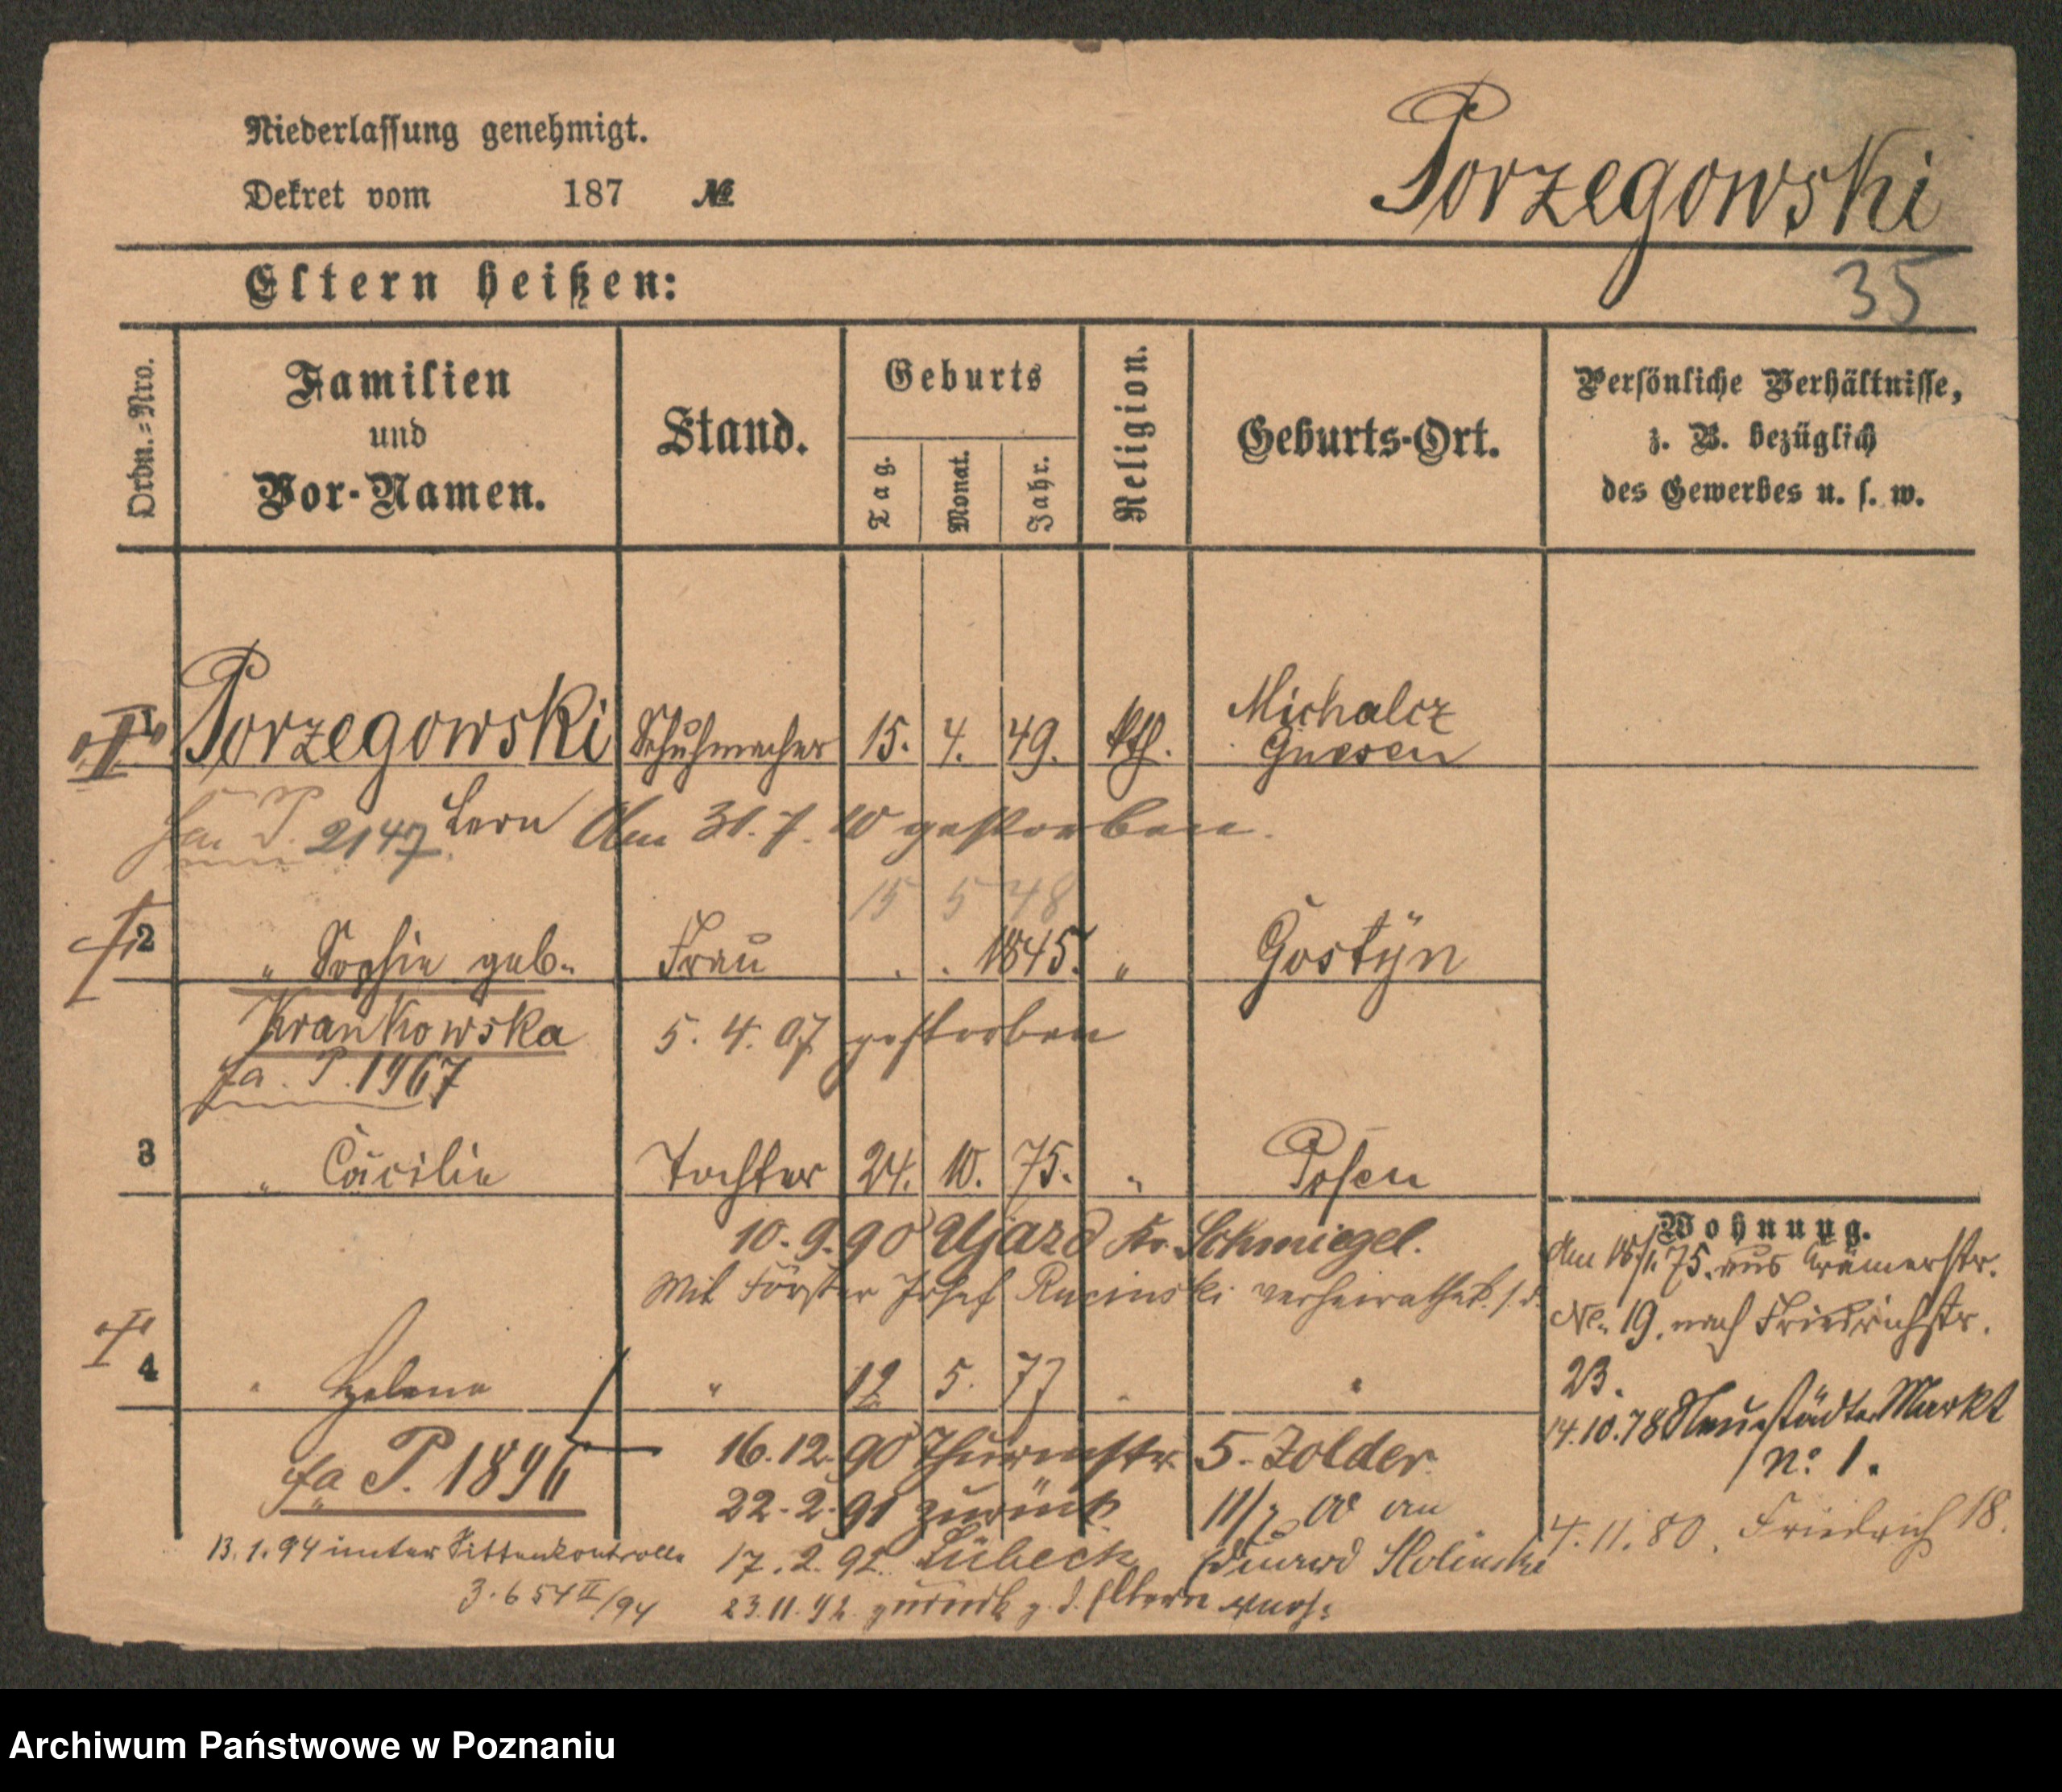 Niederlassung genehmigt.
Dekret vom 187 №
Porzegowski
35
Eltern heißen:
Ordn.-Nro.
Familien
und
Vor-Namen.
Stand.
Geburts
Tag.
Monat.
Jahr.
Religion.
Geburts-Ort.
Persönliche Verhältnisse,
z. B. bezüglich
des Gewerbes u. s. w.
1 Porzegowski Schuhmacher 15. 4. 49. kth. Michalcz
Gnesen
fa P. 2147 Am 31. 7. 10 gestorben.
15 5 48
2 " Sophie geb. Frau . . 1845. " Gostÿn
Krankowska 5. 4. 07 gestorben
fa. P. 1967
3 " Cäcilie Tochter 24. 10. 75. " Posen
10. 9. 90 Ujazd Kr. Schmiegel.
Mit Förster Josef Rucinski verheirathet
4 " Helena " 19 5. 77 " "
fa P. 1896
16. 12. 90 Thurmstr. 5. Zolder
22. 2. 91 zurück
11/7 00 an
13. 1. 94 unter Sittenkontrolle
17. 2. 92. Lübeck
Eduard Holinski
3. 654 II/94
23. 11. 92. zurück z. d. Eltern
Wohnung.
Am 15/1. 75. aus Krämerstr.
No. 19. nach Friedrichstr.
23.
14. 10. 78 Neustädter Markt
No 1.
4. 11. 80. Friedrich 18.
Archiwum Państwowe w Poznaniu